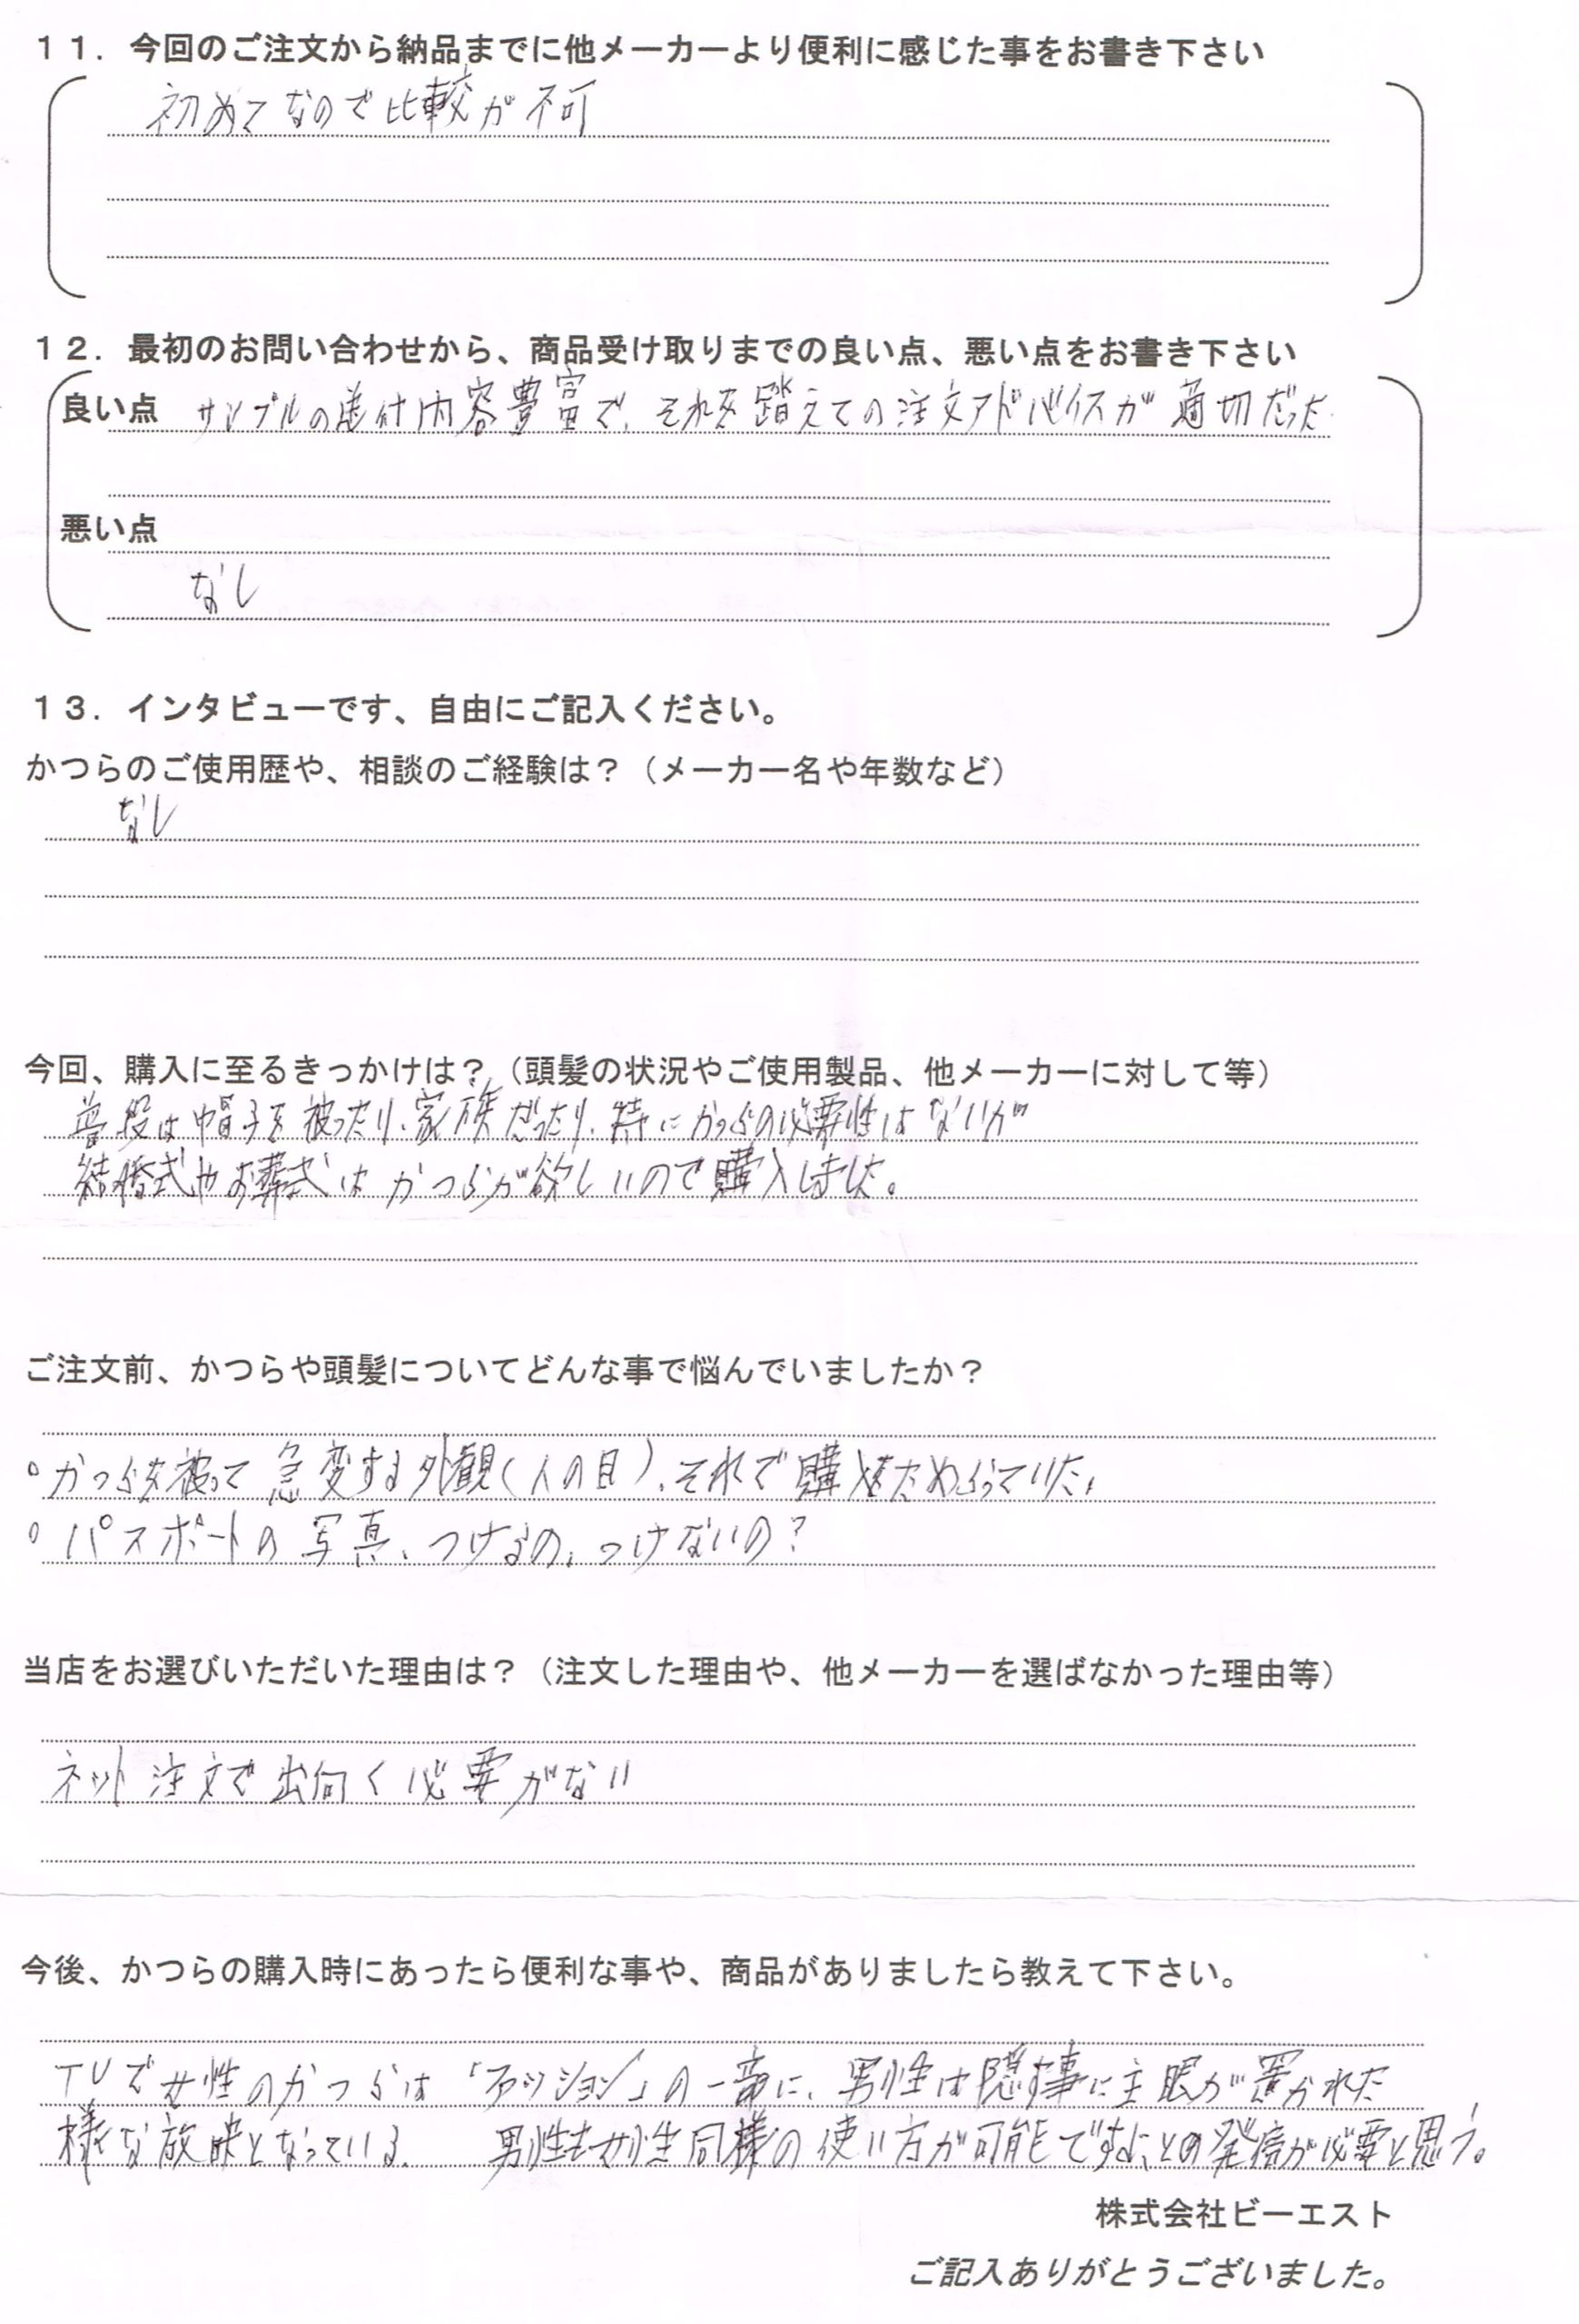 11．今回のご注文から納品までに他メーカーより便利に感じた事をお書き下さい
初めてなので比較が不可
12．最初のお問い合わせから、商品受け取りまでの良い点、悪い点をお書き下さい
良い点 サンプルの送付内容豊富で、それを踏えての注文アドバイスが適切だった
悪い点
なし
13．インタビューです、自由にご記入ください。
かつらのご使用歴や、相談のご経験は？（メーカー名や年数など）
なし
今回、購入に至るきっかけは？（頭髪の状況やご使用製品、他メーカーに対して等）
普段は帽子を被ったり、家族だったり、特にかつらの必要性はないが
結婚式やお葬式はかつらが欲しいので購入しました。
ご注文前、かつらや頭髪についてどんな事で悩んでいましたか？
○かつらを被って急変する外観（人の目）、それで購入をためらっていた。
○パスポートの写真、つけるの、つけないの？
当店をお選びいただいた理由は？（注文した理由や、他メーカーを選ばなかった理由等）
ネット注文で出向く必要がない
今後、かつらの購入時にあったら便利な事や、商品がありましたら教えて下さい。
TVで女性のかつらは「ファッション」の一部に、男性は隠す事に主眼が置かれた
様な放映となっている。男性も女性同様の使い方が可能ですよ、との発信が必要と思う。
株式会社ビーエスト
ご記入ありがとうございました。